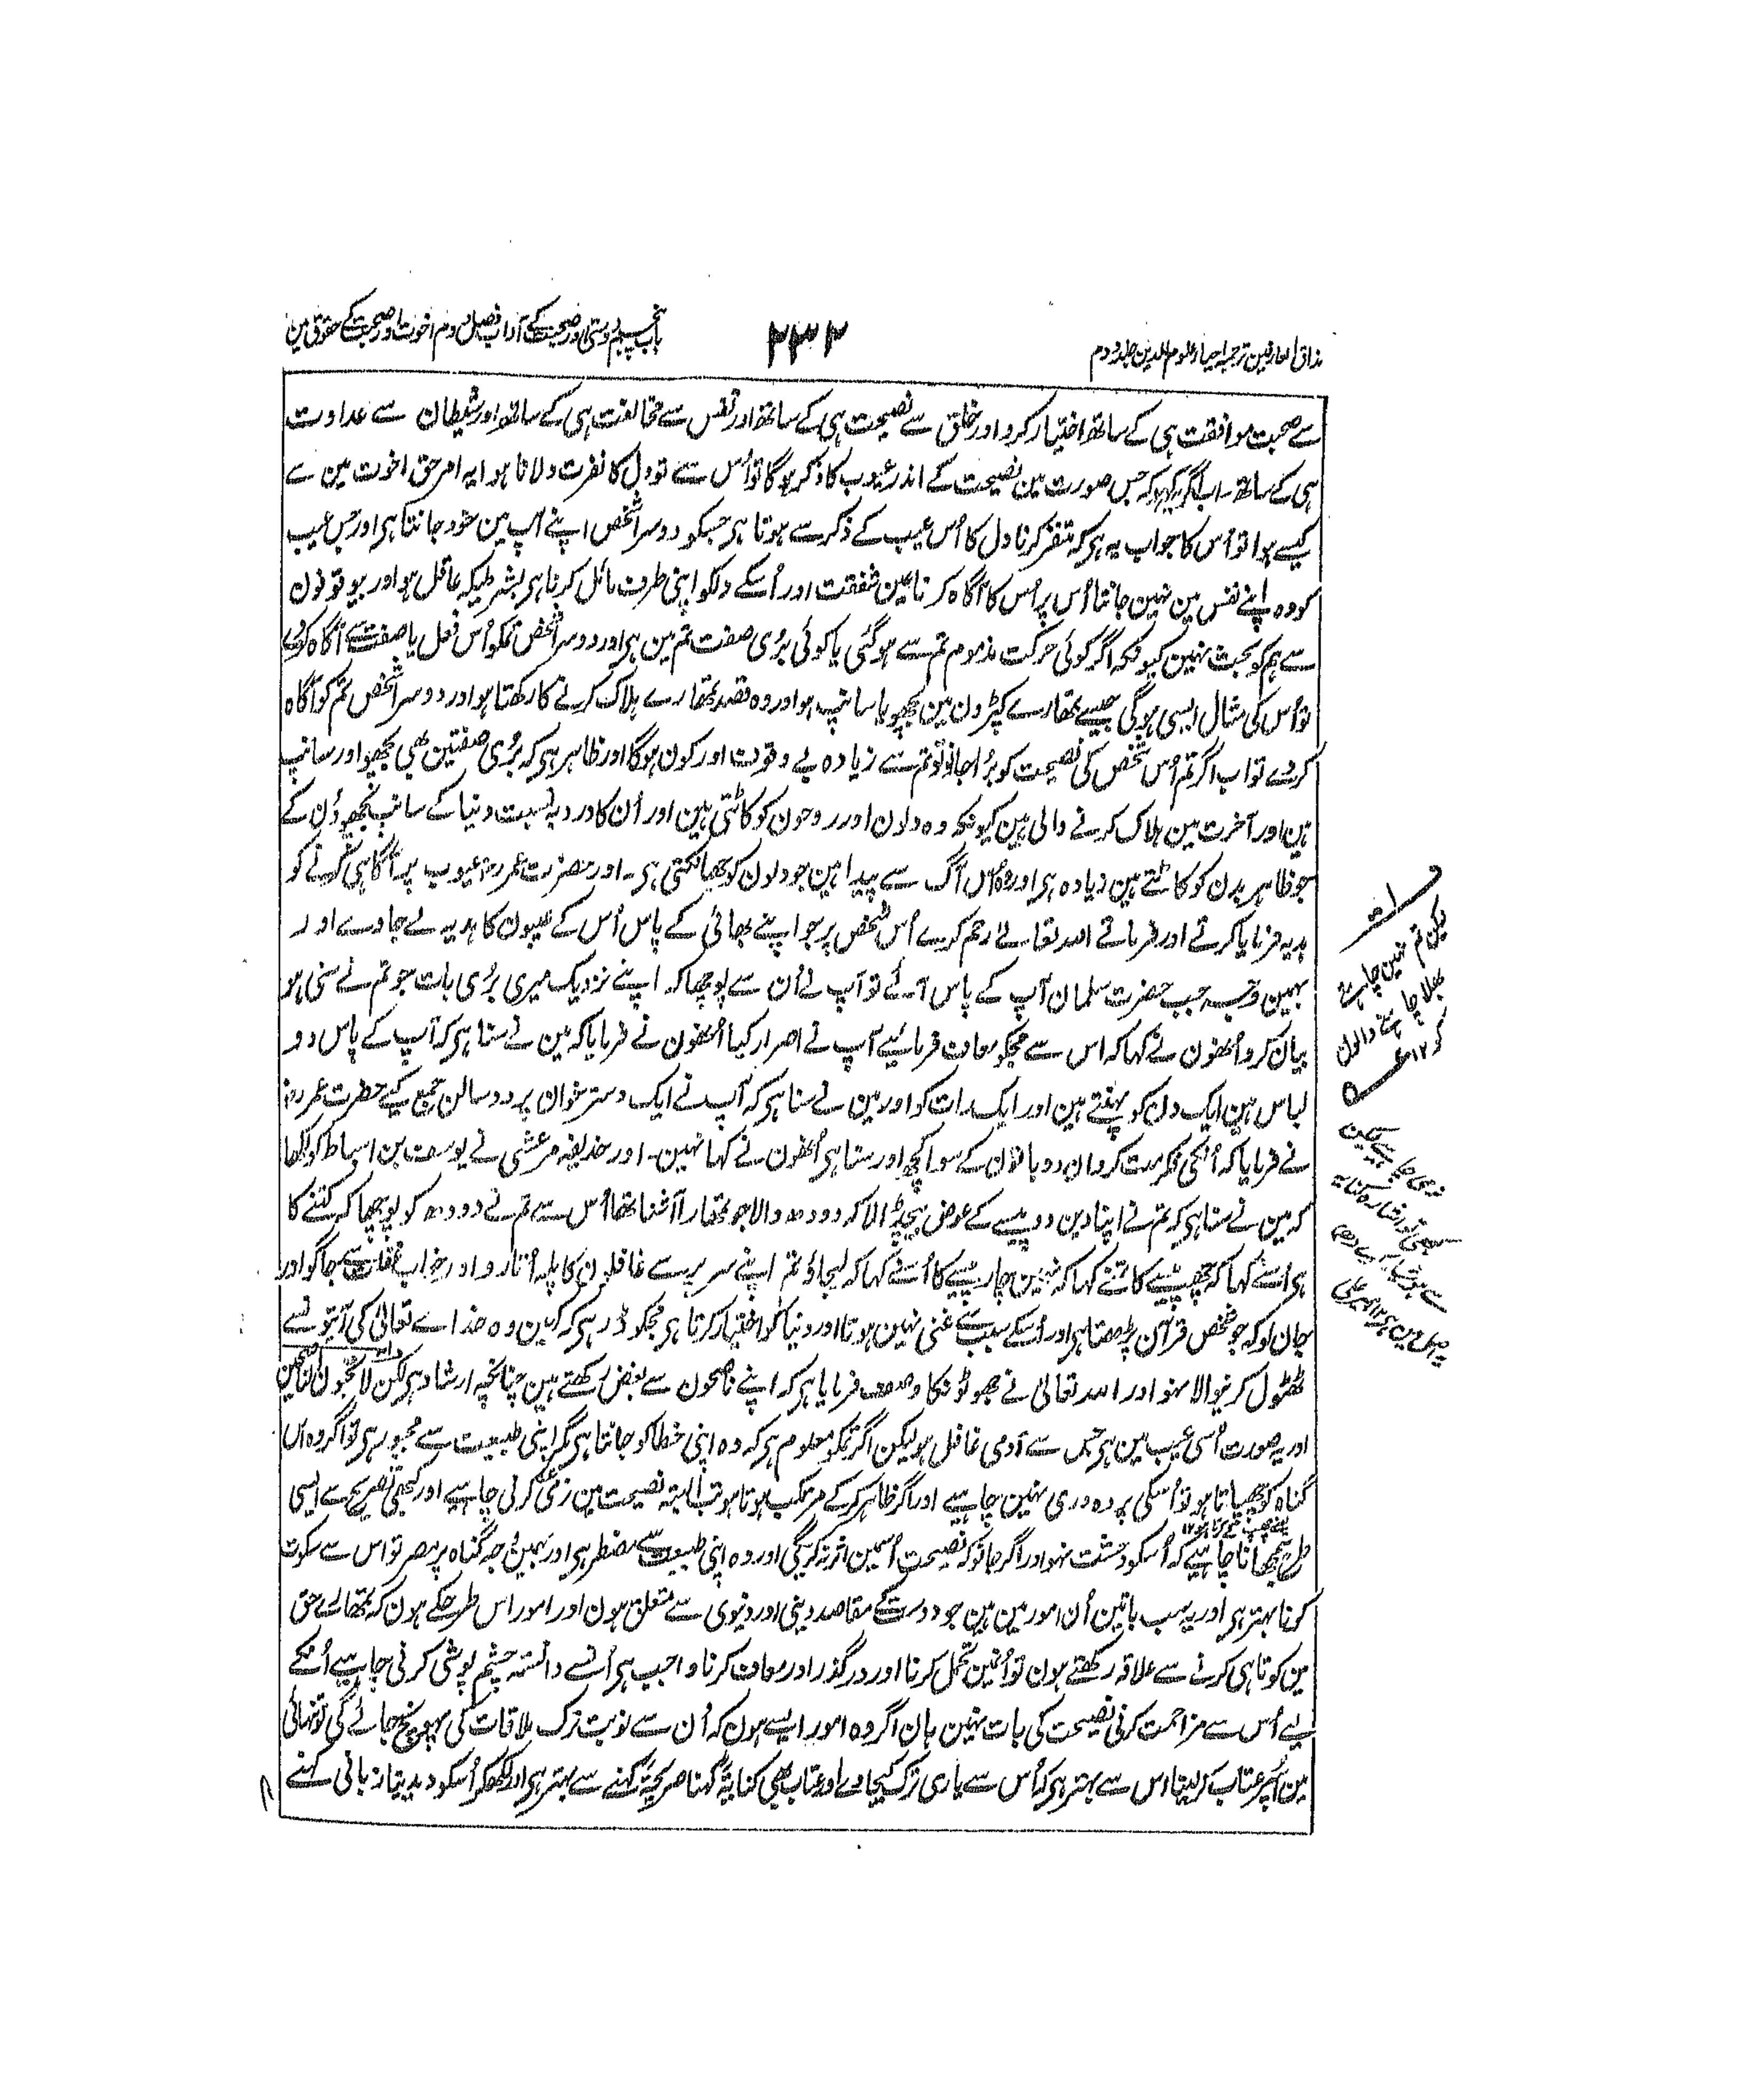 مذاق العارفین ترجمہ احیاء علوم الدین جلد دوم
۲۳۲
باب پنجم دوستی اور صحبت کے آداب فصل دوم اخوت اور صحبت کے حقوق مین
سے صحبت موافقت ہی کے ساتھ اختیار کرو اور خلق سے نصیحت ہی کے ساتھ اور نفس سے مخالفت ہی کے ساتھ اور شیطان سے عداوت
ہی کے ساتھ۔ اب اگر یہ کہو کہ جس صورت مین نصیحت کے اندر عیوب کا ذکر ہوگا تو اُس سے تو دل کا نفرت دلانا ہوا یہ امر حق اخوت مین سے
کیسے ہوا تو اُس کا جواب یہ ہی کہ متنفر کرنا دل کا اُس عیب کے ذکر سے ہوتا ہی جسکو دوسرا شخص اپنے آپ مین خود جانتا ہی اور جس عیب
کو وہ اپنے نفس مین نہین جانتا اُس پر اُس کا آگاہ کرنا عین شفقت اور اُسکے دلکو اپنی طرف مائل کرنا ہی بشرطیکہ عاقل ہو اور بیوقوفون
سے ہم کو بحث نہین کیونکہ اگر کوئی حرکت مذموم تم سے ہوگئی یا کوئی بُری صفت تم مین ہی اور دوسرا شخص تمکو اُس فعل یا صفت سے آگاہ کردے
تو اُس کی مثال ایسی ہوگی جیسے تمھارے کپڑون مین بچھو یا سانپ ہو اور وہ قصد تمھارے ہلاک کرنے کا رکھتا ہو اور دوسرا شخص تم کو آگاہ
کردے تو اب اگر تم اُس شخص کی نصیحت کو بُرا جانو تو تم سے زیادہ بے وقوف اور کون ہوگا اور ظاہر ہی کہ بُری صفتین بھی بچھو اور سانپ
ہین اور آخرت مین ہلاک کرنے والی ہین کیونکہ وہ دلون اور روحون کو کاٹتی ہین اور اُن کا درد بہ نسبت دنیا کے سانپ بچھوؤن کے
جو ظاہر بدن کو کاٹتے ہین زیادہ ہی اور وہ اُس آگ سے پیدا ہین جو دلون کو جھانکتی ہی۔ اور حضرت عمر رض عیوب پر آگاہی کرنے کو
ہدیہ فرمایا کرتے اور فرماتے اللہ تعالےٰ رحم کرے اُس شخص پر جو اپنے بھائی کے پاس اُس کے عیبون کا ہدیہ لے جاوے اور
بہمین وجہ جب حضرت سلمان آپ کے پاس آئے تو آپ نے اُن سے پوچھا کہ اپنے نزدیک میری بُری بات جو تم نے سنی ہو
بیان کرو اُنھون نے کہا کہ اس سے مجکو معاف فرمائیے آپ نے اصرار کیا اُنھون نے فرمایا کہ مین نے سنا ہی کہ آپ کے پاس دو
لباس ہین ایک دن کو پہنتے ہین اور ایک رات کو اور مین نے سنا ہی کہ آپ نے ایک دسترخوان پر دو سالن جمع کیے حضرت عمر رض
نے فرمایا کہ اُنکی فکر مت کرو ان دو باتون کے سوا کچھ اور سنا ہی اُنھون نے کہا نہین۔ اور حذیفہ مرعشی نے یوسف بن اسباط کو لکھا
کہ مین نے سنا ہی کہ تم نے اپنا دین دو پیسے کے عوض بیچ ڈالا کہ دودھ والا جو تمھارا آشنا تھا اُس سے تم نے دودھ کو پوچھا کہ کتنے کا
ہی اُسنے کہا کہ چھ پیسے کا تمنے کہا کہ نہین چار پیسے کا اُسنے کہا کہ لیجاؤ تم اپنے سر پر سے غافلون کا پلہ اُتارو اور خواب غفلت سے جاگو اور
جان لو کہ جو شخص قرآن پڑھتا ہی اور اُسکے سبب سے غنی نہین ہوتا اور دنیا کو اختیار کرتا ہی مجکو ڈر ہی کہ کہین وہ خداے تعالیٰ کی آیتون سے
ٹھٹول کرنیوالا نہو اور اللہ تعالیٰ نے جھوٹونکا وصف فرمایا ہی کہ اپنے ناصحون سے بغض رکھتے ہین چنانچہ ارشاد ہی ولکن لا تحبون الناصحین
اور یہ صورت اُسی عیب مین ہی جس سے آدمی غافل ہو لیکن اگر تمکو معلوم ہی کہ وہ اپنی خطا کو جانتا ہی مگر اپنی طبیعت سے مجبور ہی تو اگر وہ اس
گناہ کو چھپاتا ہو تو اُسکی پردہ دری نہین چاہیے اور اگر ظاہر کرکے مرتکب ہوتا ہو تب البتہ نصیحت مین نرمی کرنی چاہیے اور کبھی تصریح سے ایسی
طرح سمجھانا چاہیے کہ اُسکو وحشت نہو اور اگر جانو کہ نصیحت اُسمین اثر نہ کریگی اور وہ اپنی طبیعت سے مضطر ہی اور بہمین وجہ گناہ پر مصر تو اس سے سکوت
کرنا بہتر ہی اور یہ سب باتین اُن امور مین ہین جو دوست کے مقاصد دینی اور دنیوی سے متعلق ہون اور امور اس طرح کے ہون کہ تمھارے حق
مین کوتاہی کرنے سے علاقہ رکھتے ہون تو اُنمین تحمل کرنا اور درگذر اور معاف کرنا واجب ہی اُنسے دانستہ چشم پوشی کرنی چاہیے اُنکے
لیے اُس سے مزاحمت کرنی نصیحت کی بات نہین ہان اگر وہ امور ایسے ہون کہ اُن سے نوبت ترک ملاقات کی پہونچ جائے گی تو تنہائی
مین اُسپر عتاب کرلینا اس سے بہتر ہی کہ اُس سے یاری ترک کیجاوے اور عتاب بھی کنایۃً کہنا صریحۃً کہنے سے بہتر ہی اور لکھکر اُسکو دیدینا زبانی کہنے
لیکن تم نہین چاہتے
بھلا چاہنے والون
کو ۱۲